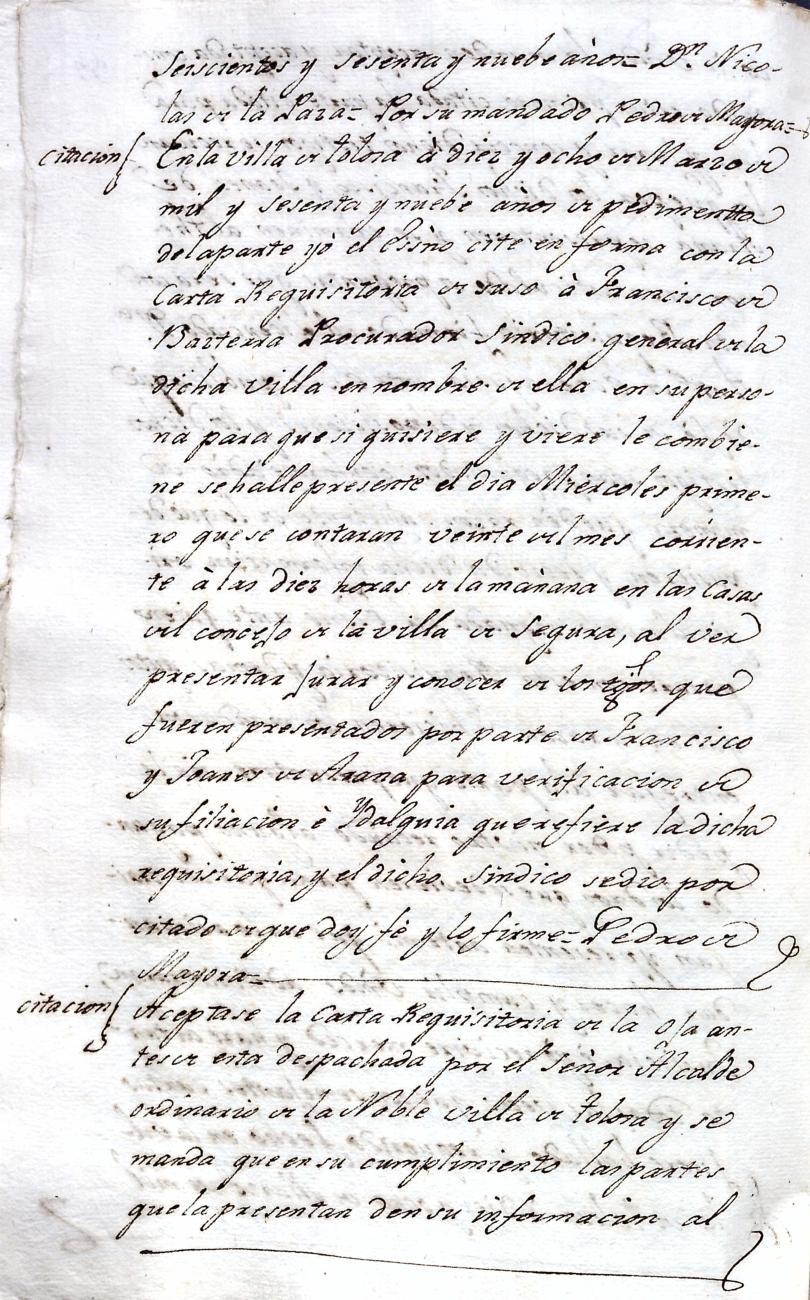 Seiscientos y sesenta y nuebe años= Dn. Nico-
las de la Para= Por su mandado Pedro de Mayora=
citacion En la villa de tolosa à diez y ocho de Marzo de
mil y sesenta y nuebe años de pedimentto
de la parte yò el essno cite en forma con la
Carta Requisitoria de suso à Francisco de
Barterra Procurador Sindico general de la
dicha villa en nombre de ella en su perso-
na para que si quisiere y viere le combie-
ne se halle presente el dia Miercoles prime-
ro que se contaran veinte del mes corrien-
te à las diez horas de la mañana en las Casas
del concejo de la villa de Segura, al ver
presentar Jurar y conocer de los tgos que
fueren presentados por parte de Francisco
y Joanes de Arana para verificacion de
su filiacion è Ydalguia que refiere la dicha
requisitoria, y el dicho Sindico se dio por
citado de que doy fè y lo firme= Pedro de
Mayora=
citacion Aceptase la Carta Requisitoria de la oja an-
tes de esta despachada por el Señor Alcalde
ordinario de la Noble villa de tolosa y se
manda que en su cumplimiento las partes
que la presentan den su informacion al